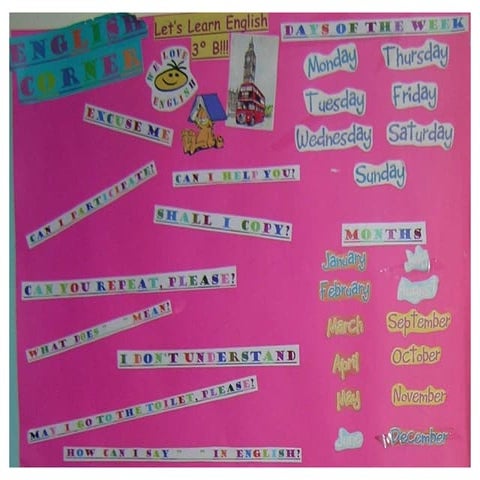 ENGLISH
CORNER
Let's Learn English
3° B!!!
WE LOVE
ENGLISH
EXCUSE ME
CAN I PARTICIPATE!
CAN I HELP YOU!
SHALL I COPY?
CAN YOU REPEAT, PLEASE!
WHAT DOES " " MEAN!
I DON'T UNDERSTAND
MAY I GO TO THE TOILET, PLEASE!
HOW CAN I SAY " " IN ENGLISH!
DAYS OF THE WEEK
Monday
Tuesday
Wednesday
Thursday
Friday
Saturday
Sunday
MONTHS
January
February
March
April
May
June
July
August
September
October
November
December